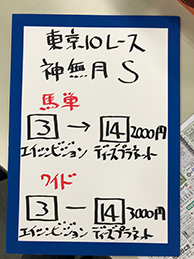 東京10レース
神無月S
馬単
3→14 2000円
エイシンビジョン ディープラネット
ワイド
3—14 3000円
エイシンビジョン ディープラネット